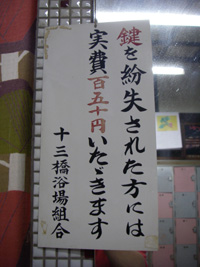 鍵を紛失された方には
実費百五十円いたゞきます
十三橋浴場組合